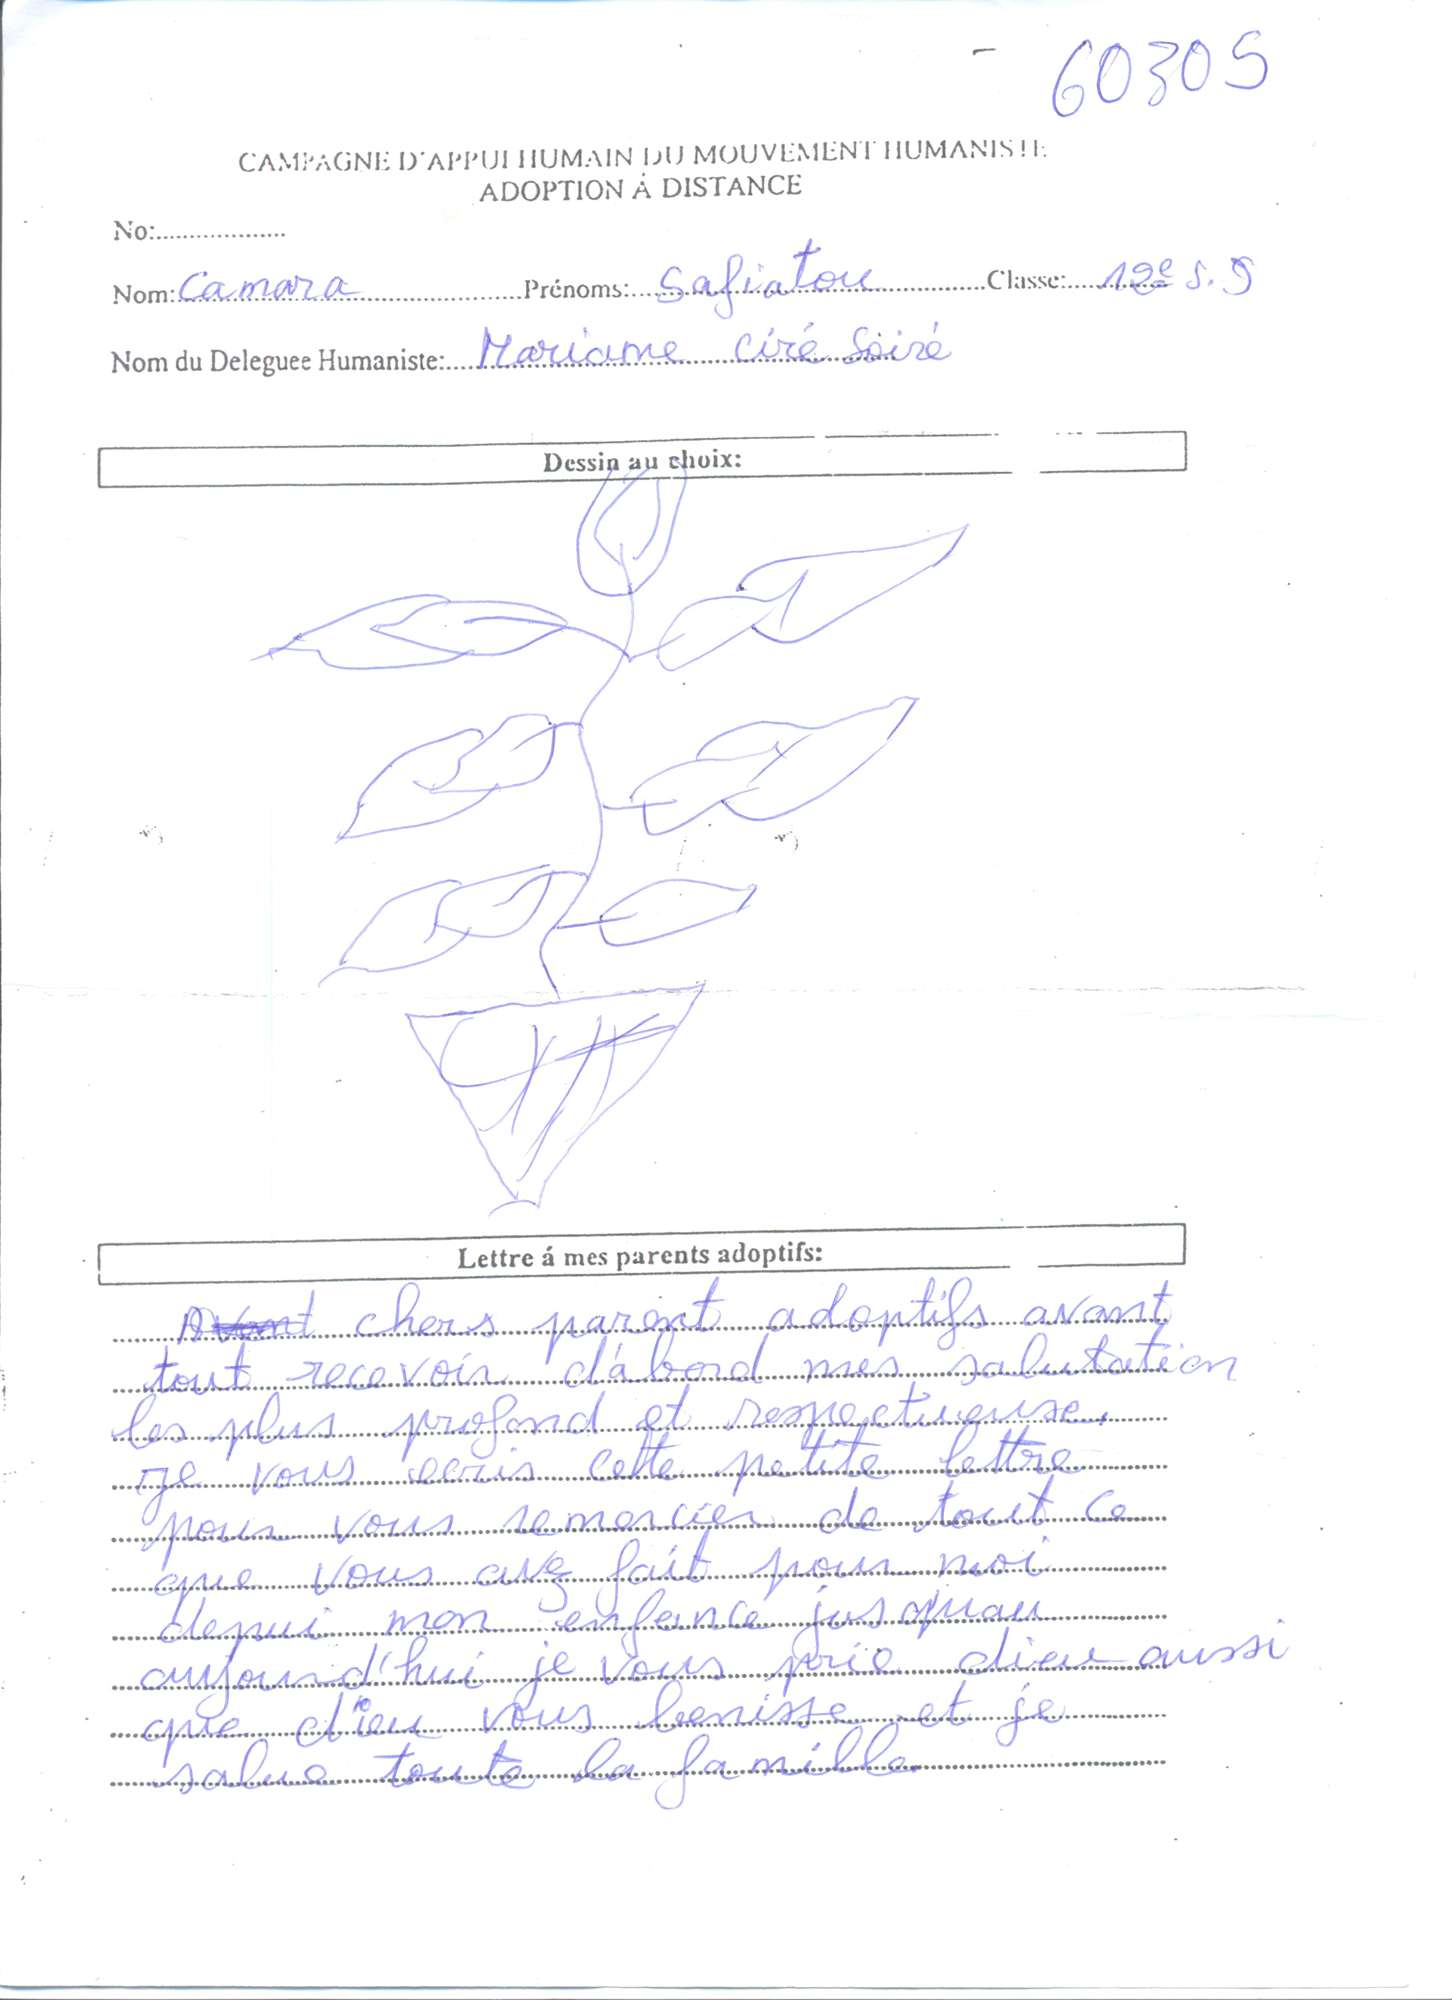 60305
CAMPAGNE D'APPUI HUMAIN DU MOUVEMENT HUMANISTE
ADOPTION Á DISTANCE
No:....................
Nom: Camara Prénoms: Safiatou Classe: 12e S.S
Nom du Deleguee Humaniste: Mariame Ciré Soiré
Dessin au choix:
Lettre á mes parents adoptifs:
Avant chers parent adoptifs avant
tout recevoir d'abord mes salutation
les plus profond et respectueuse,
je vous ecris cette petite lettre
pour vous remercier de tout ce
que vous avez fait pour moi
depui mon enfance jusqu'au
aujourd'hui je vous prie dieu aussi
que dieu vous benisse et je
salue toute la famille